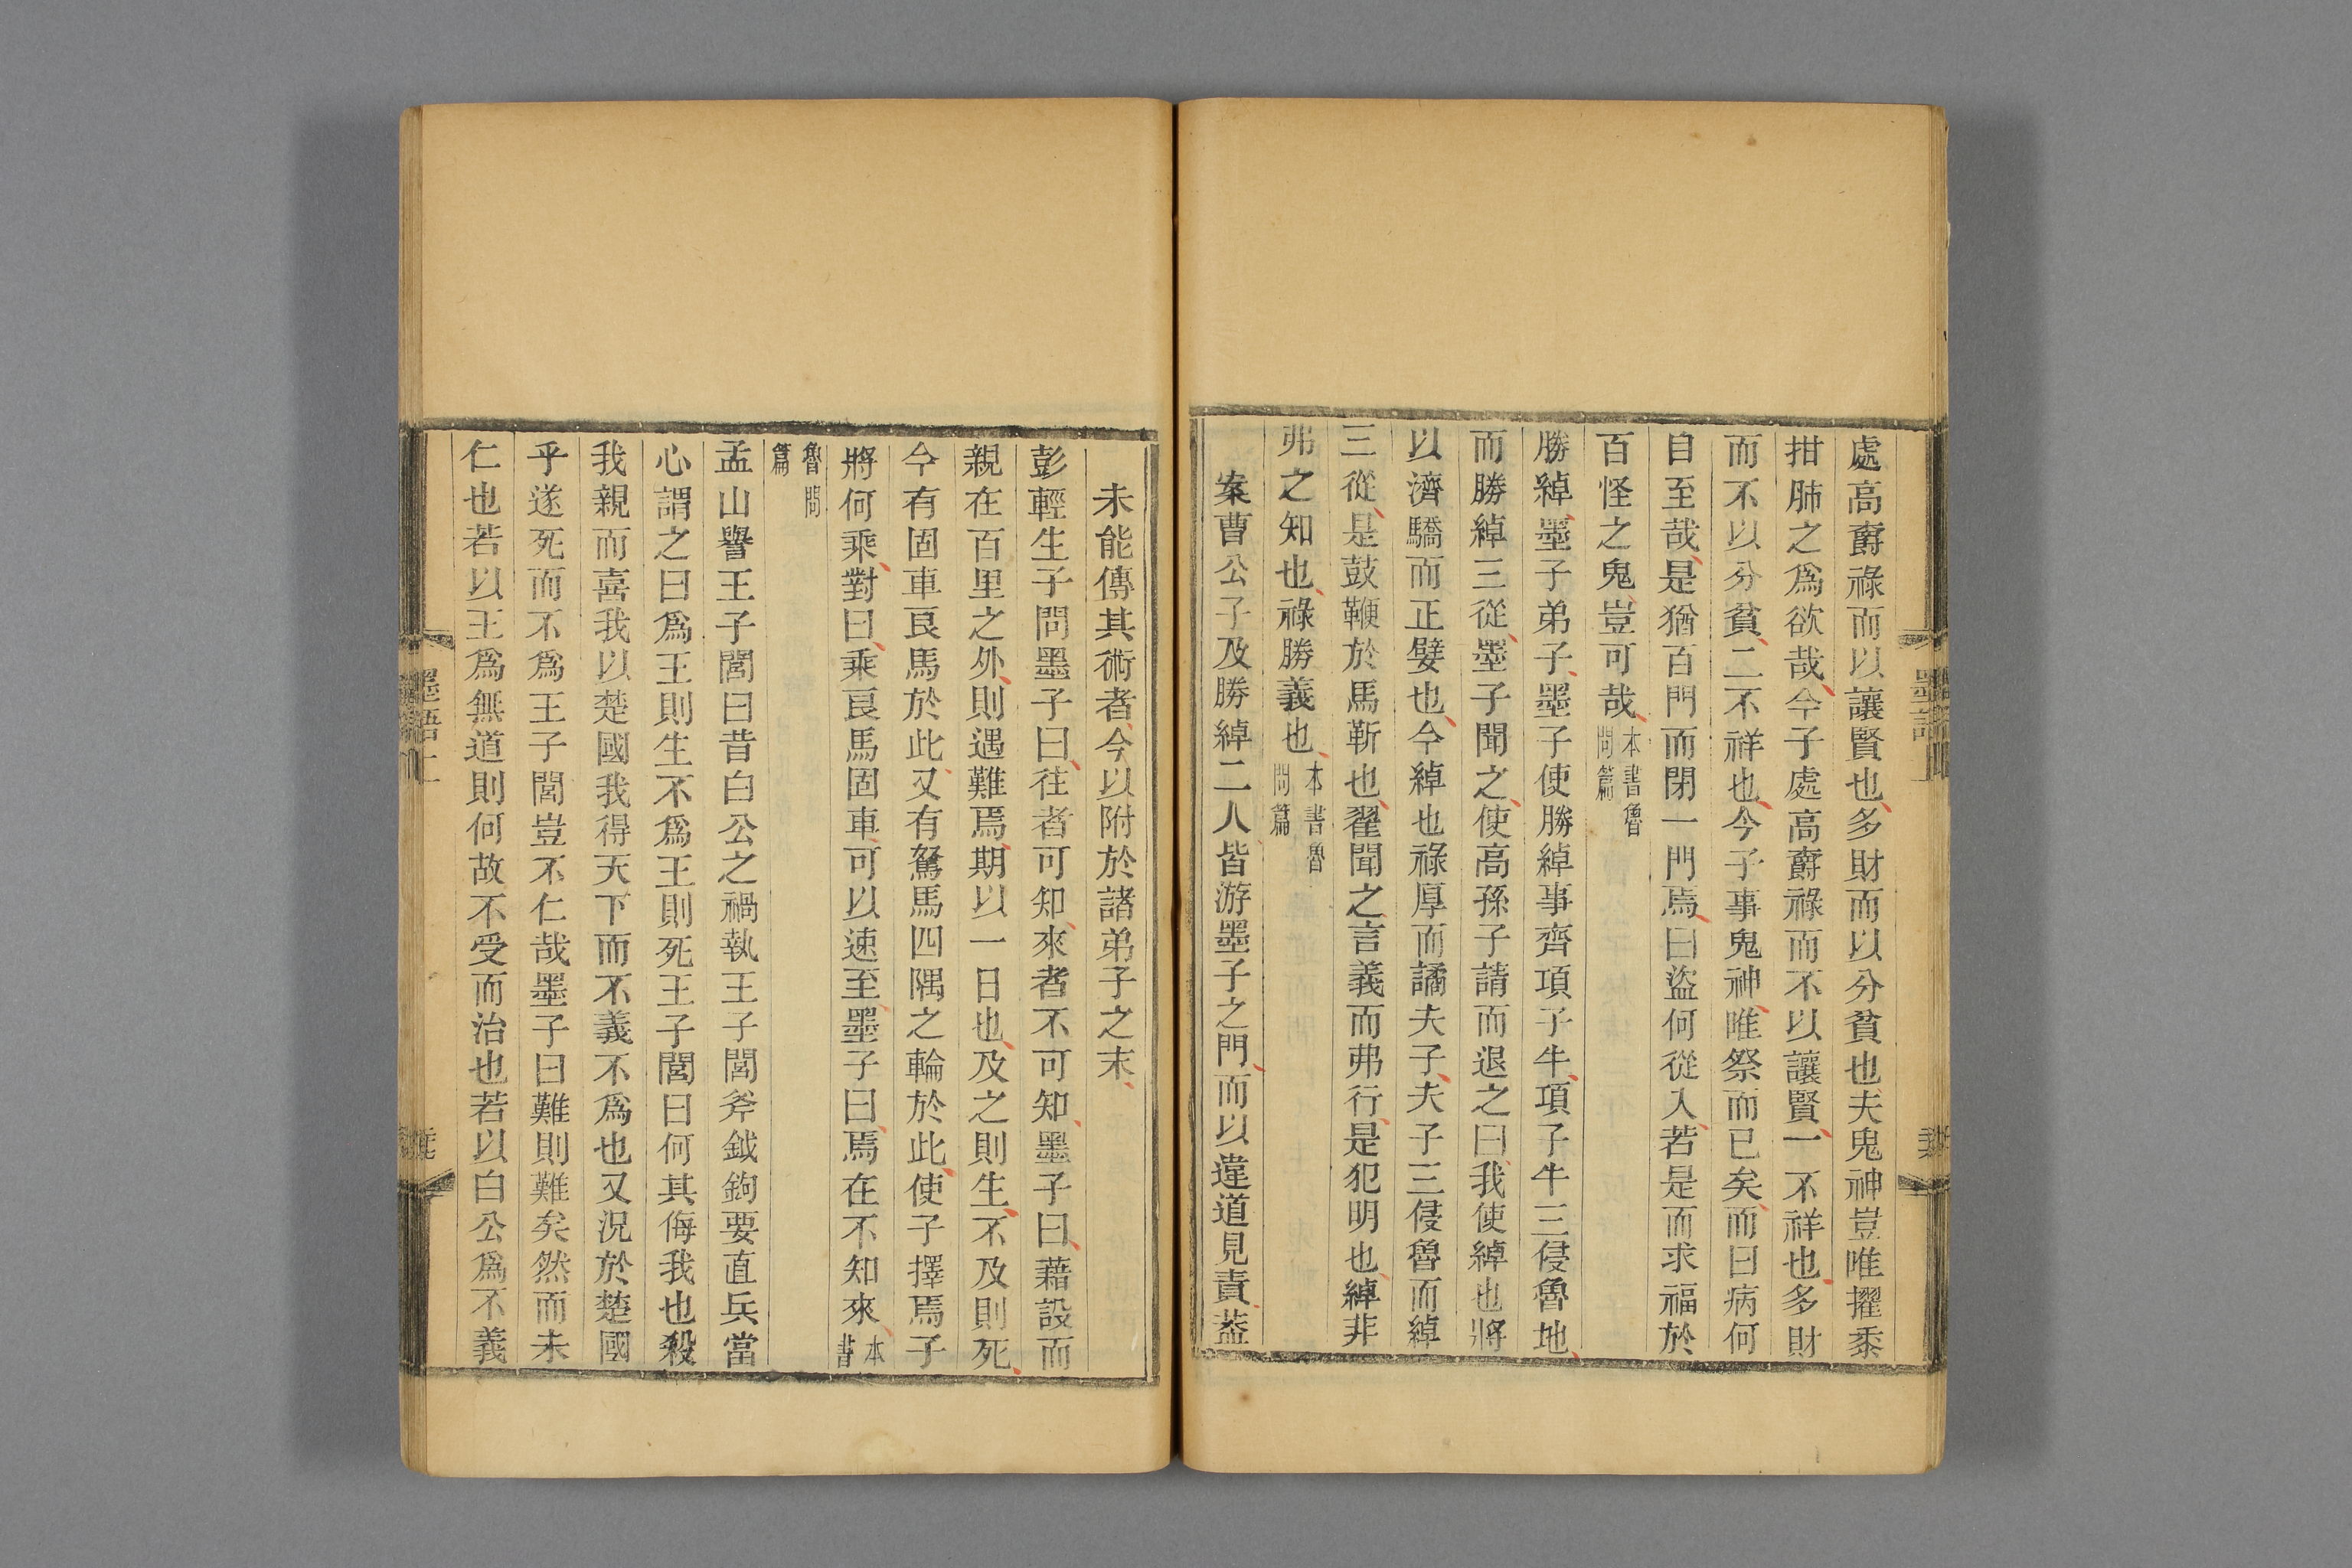 處高爵祿而以讓賢也多財而以分貧也夫鬼神豈唯擢黍
拑肺之爲欲哉今子處高爵祿而不以讓賢一不祥也多財
而不以分貧二不祥也今子事鬼神唯祭而已矣而曰病何
自至哉是猶百門而閉一門焉曰盜何從入若是而求福於
百怪之鬼豈可哉本書魯問篇
勝綽墨子弟子墨子使勝綽事齊項子牛項子牛三侵魯地
而勝綽三從墨子聞之使高孫子請而退之曰我使綽也將
以濟驕而正嬖也今綽也祿厚而譎夫子夫子三侵魯而綽
三從是鼓鞭於馬靳也翟聞之言義而弗行是犯明也綽非
弗之知也祿勝義也本書魯問篇
案曹公子及勝綽二人皆游墨子之門而以違道見責葢
未能傳其術者今以附於諸弟子之末
彭輕生子問墨子曰往者可知來者不可知墨子曰藉設而
親在百里之外則遇難焉期以一日也及之則生不及則死
今有固車良馬於此又有駑馬四隅之輪於此使子擇焉子
將何乘對曰乘良馬固車可以速至墨子曰焉在不知來本書
魯問篇
孟山譽王子閭曰昔白公之禍執王子閭斧鉞鉤要直兵當
心謂之曰爲王則生不爲王則死王子閭曰何其侮我也殺
我親而喜我以楚國我得天下而不義不爲也又況於楚國
乎遂死而不爲王子閭豈不仁哉墨子曰難則難矣然而未
仁也若以王爲無道則何故不受而治也若以白公爲不義
墨語上